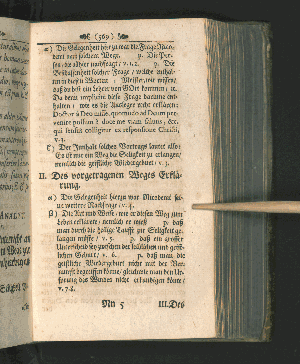 (569)
α) Die Gelegenheit hierzu war die Frage Nico-
demi nach solchem Wege. β. Die Per-
son, die allhier nachfragt / v. 1. 2. γ. Die
Beschaffenheit solcher Frage / welche enthal-
ten in diesen Worten: Meister, wir wissen,
daß du bist ein Lehrer von GOtt kommen ꝛc.
Da denn implicite diese Frage darinne ent-
halten: wie es die Analoges recht erklären:
Doctor à Deo missus, quomodo ad Deum per-
venire possum & doce me viam salutis; &c.
qui sensus colligitur ex responsione Christi,
v. 3.
ζ) Der Innhalt solches Vortrages lautet also:
Es ist nur ein Weg die Seligkeit zu erlangen,
nemlich die geistliche Wiedergeburt / v. 3.
II. Des vorgetragenen Weges Erklä-
rung.
α) Die Gelegenheit hierzu war Nicodemi sei-
ne weitere Nachfrage / v. 4.
β) Die Art und Weise / wie er diesen Weg zum
Leben erläutert / nemlich er wies β. daß
man durch die heilige Tauffe zur Seligkeit ge-
langen müsse / v. 5. β. daß ein grosser
Unterscheid sey zwischen der leiblichen und geist-
lichen Geburt / v. 6. β. daß man die
geistliche Wiedergeburt nicht mit der Ver-
nunfft begreiffen könne / gleichwie man den Ur-
sprung des Windes nicht erkundigen könte /
v. 7. 8.
Nn 5
III. Des